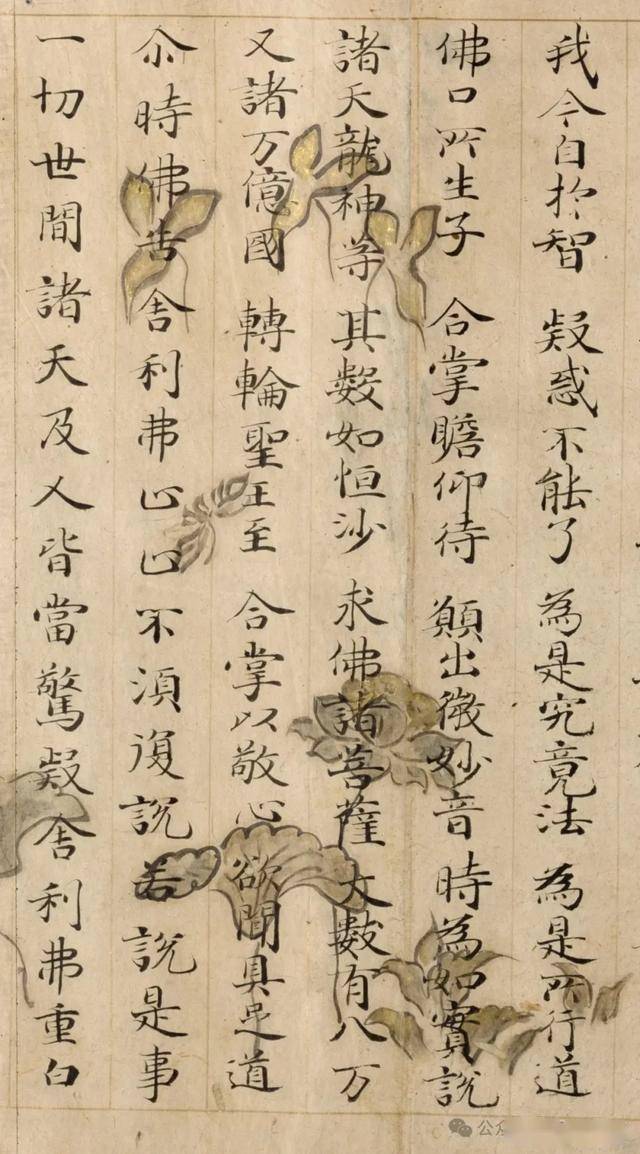 我今自於智 疑惑不能了 為是究竟法 為是所行道
佛口所生子 合掌瞻仰待 願出微妙音 時為如實說
諸天龍神等 其數如恒沙 求佛諸菩薩 大數有八万
又諸万億國 轉輪聖王至 合掌以敬心 欲聞具足道
尒時佛告舍利弗止止不須復說若說是事
一切世間諸天及人皆當驚疑舍利弗重白
公众